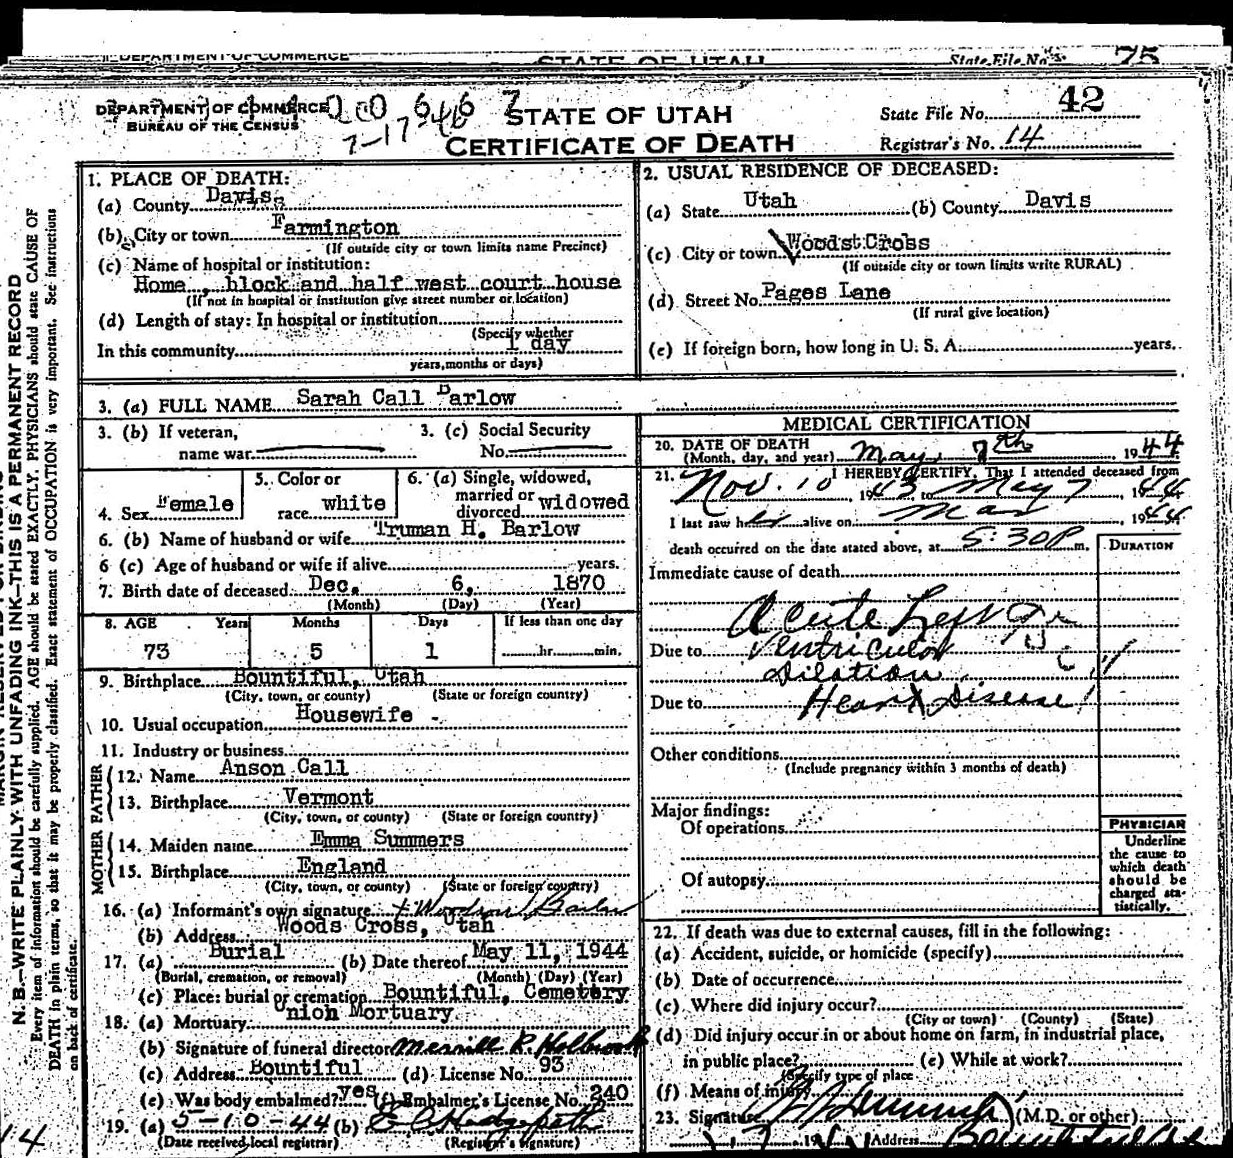 DEPARTMENT OF COMMERCE STATE OF UTAH State File No. 75
DEPARTMENT OF COMMERCE
BUREAU OF THE CENSUS
7-17-46
STATE OF UTAH
CERTIFICATE OF DEATH
State File No. 42
Registrar's No. 14
1. PLACE OF DEATH:
(a) County Davis
(b) City or town Farmington
(If outside city or town limits name Precinct)
(c) Name of hospital or institution:
Home, block and half west court house
(If not in hospital or institution give street number or location)
(d) Length of stay: In hospital or institution
(Specify whether
In this community 1 day
years, months or days)
2. USUAL RESIDENCE OF DECEASED:
(a) State Utah (b) County Davis
(c) City or town Woods Cross
(If outside city or town limits write RURAL)
(d) Street No. Pages Lane
(If rural give location)
(e) If foreign born, how long in U. S. A. years.
3. (a) FULL NAME Sarah Call Barlow
3. (b) If veteran, name war
3. (c) Social Security No.
4. Sex Female
5. Color or race white
6. (a) Single, widowed, married or divorced widowed
6. (b) Name of husband or wife Truman H. Barlow
6 (c) Age of husband or wife if alive years.
7. Birth date of deceased Dec. 6, 1870
(Month) (Day) (Year)
8. AGE Years Months Days If less than one day
73 5 1 hr. min.
9. Birthplace Bountiful, Utah
(City, town, or county) (State or foreign country)
10. Usual occupation Housewife
11. Industry or business
FATHER
12. Name Anson Call
13. Birthplace Vermont
(City, town, or county) (State or foreign country)
MOTHER
14. Maiden name Emma Summers
15. Birthplace England
(City, town, or county) (State or foreign country)
16. (a) Informant's own signature
(b) Address Woods Cross, Utah
17. (a) Burial (b) Date thereof May 11, 1944
(Burial, cremation, or removal) (Month) (Day) (Year)
(c) Place: burial or cremation Bountiful, Cemetery
18. (a) Mortuary Union Mortuary
(b) Signature of funeral director Merrill R. Holbrook
(c) Address Bountiful (d) License No. 93
(e) Was body embalmed? yes (f) Embalmer's License No. 240
19. (a) 5-10-44 (b)
(Date received local registrar) (Registrar's signature)
MEDICAL CERTIFICATION
20. DATE OF DEATH
(Month, day, and year) May 7th 1944
21. I HEREBY CERTIFY, That I attended deceased from
Nov. 10, 1943 to May 7, 1944
I last saw her alive on May, 1944
death occurred on the date stated above, at 5:30P m.
DURATION
Immediate cause of death
Acute Left
Due to Ventricular
Dilation
Due to Heart Disease
Other conditions
(Include pregnancy within 3 months of death)
Major findings:
Of operations
Of autopsy
PHYSICIAN
Underline the cause to which death should be charged statistically.
22. If death was due to external causes, fill in the following:
(a) Accident, suicide, or homicide (specify)
(b) Date of occurrence
(c) Where did injury occur?
(City or town) (County) (State)
(d) Did injury occur in or about home on farm, in industrial place,
in public place? (e) While at work?
(Specify type of place
(f) Means of injury
23. Signature (M.D. or other)
Address
N. B.—WRITE PLAINLY WITH UNFADING INK—THIS IS A PERMANENT RECORD
Every item of information should be carefully supplied. AGE should be stated EXACTLY. PHYSICIANS should state CAUSE OF
DEATH in plain terms, so that it may be properly classified. Exact statement of OCCUPATION is very important. See instructions
on back of certificate.
14